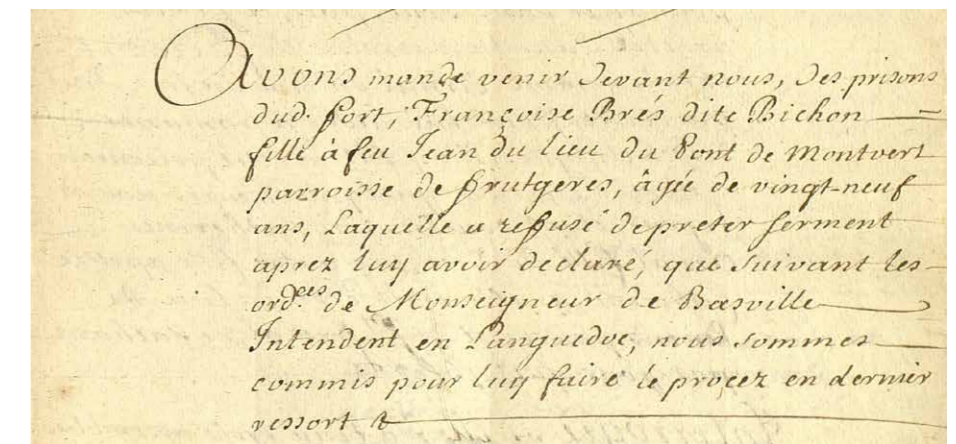 Avons mandé venir devant nous, des prisons
dud. fort, Françoise Brés dite Bichon
fille à feu Jean du lieu du Pont de Montvert
parroisse de frutgeres, âgée de vingt-neuf
ans, Laquelle a reffusé de preter serment
aprez luy avoir declaré, que suivant les
ord.ces de Monseigneur de Basville
Intendent en Languedoc, nous sommes
commis pour luy faire le procez en dernier
ressort